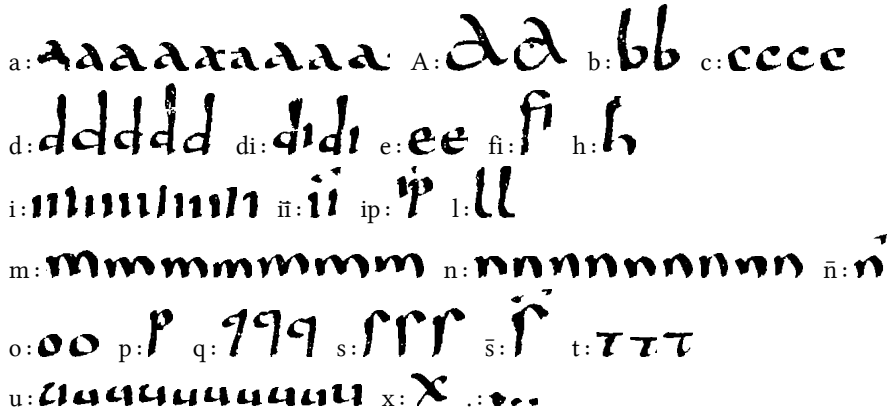 a: aaaaaaaaa A: AA b: bb c: cccc
d: ddddd di: didi e: ee fi: fi h: h
i: iiiiiiiiiii īī: īī ip: ip l: ll
m: mmmmmmm n: nnnnnnnnn n̄: n̄
o: oo p: p q: qqq s: sss s̄: s̄ t: ttt
u: uuuuuuuuuu x: x .: ...